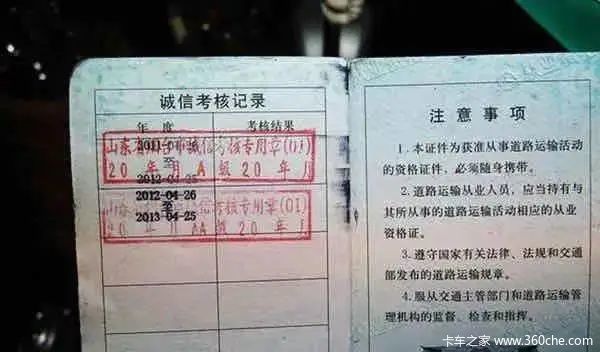 诚信考核记录
年 度
考核结果
至
2012-04-25
2012-04-26
至
2013-04-25
A 级 20 年
考核专用章(01)
AA 级 20 年
注 意 事 项
1.本证件为获准从事道路运输活动
的资格证件，必须随身携带。
2.道路运输从业人员，应当持有与
其所从事的道路运输活动相应的从业
资格证。
3.遵守国家有关法律、法规和交通
部发布的道路运输规章。
4.服从交通主管部门和道路运输管
理机构的监督、检查和指挥。
卡车之家 www.360che.com